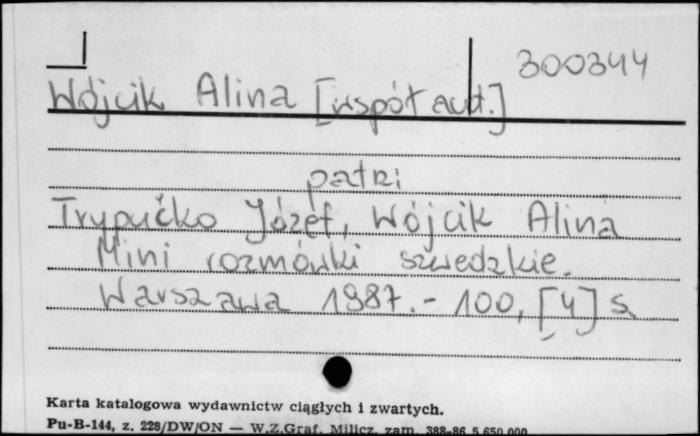 300344
Wójcik Alina [współaut.]
patrz
Trypućko Józef, Wójcik Alina
Mini rozmówki szwedzkie.
Warszawa 1987. - 100, [4] s.
Karta katalogowa wydawnictw ciągłych i zwartych.
Pu-B-144, z. 228/DW/ON — W.Z.Graf. Milicz, zam. 388-86 5.650.000